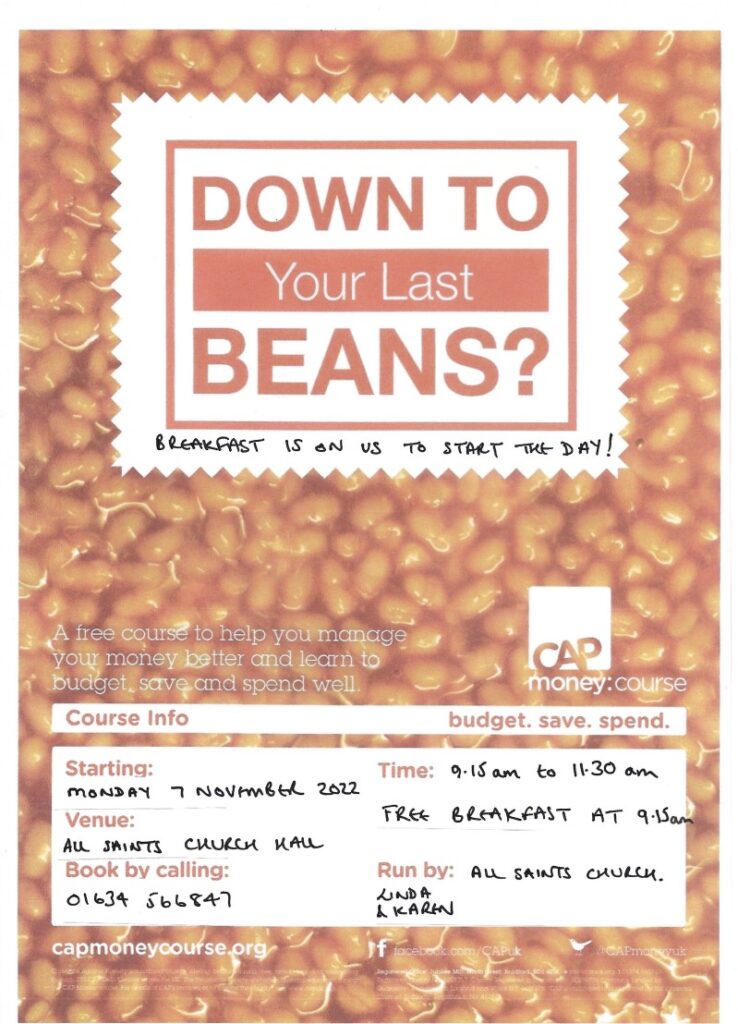 DOWN TO
Your Last
BEANS?
BREAKFAST IS ON US TO START THE DAY!
A free course to help you manage
your money better and learn to
budget, save and spend well.
CAP
money:course
Course Info
budget. save. spend.
Starting:
MONDAY 7 NOVEMBER 2022
Venue:
ALL SAINTS CHURCH HALL
Book by calling:
01634 566847
Time: 9.15 am to 11.30 am
FREE BREAKFAST AT 9.15am
Run by: ALL SAINTS CHURCH.
LINDA
& KAREN
capmoneycourse.org
facebook.com/CAPuk
@CAPmoneyuk